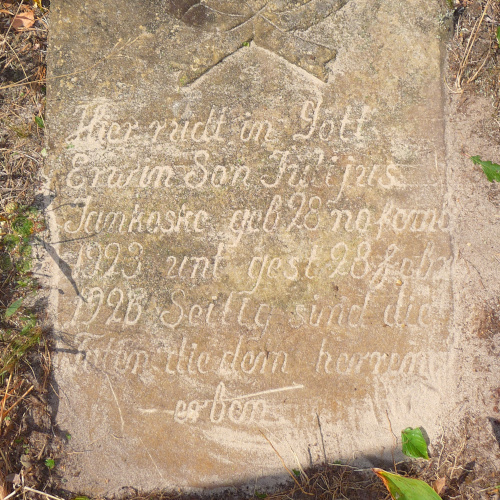 Hier rudt in Gott
Erwin Son Julijus
Jankoske geb 28 nofomb
1923 unt gest 28 febr
1926 Seilig sind die
Toten die dem herren
erben